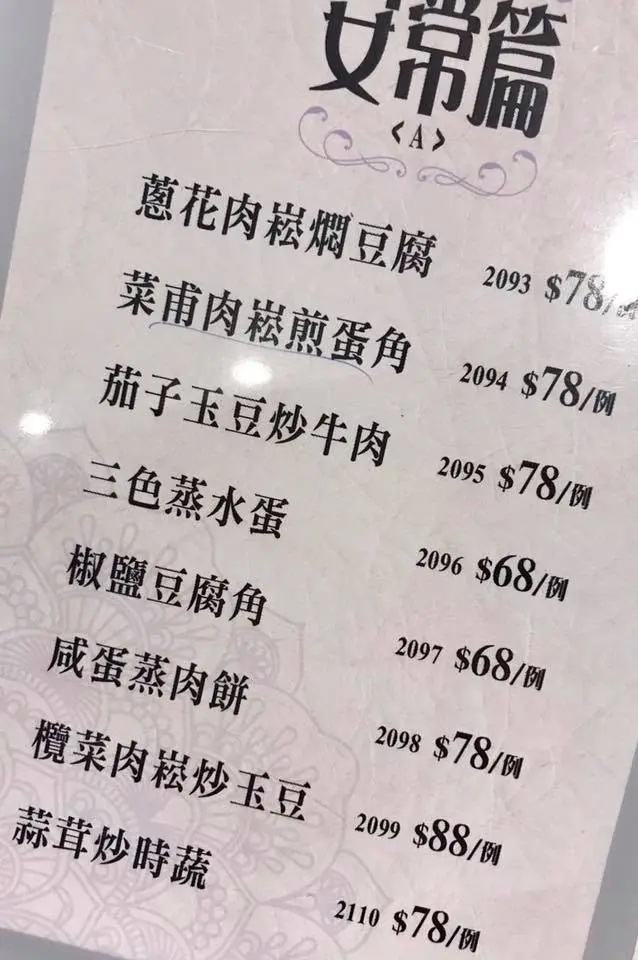 女常篇
<A>
蔥花肉崧燜豆腐 2093 $78/例
菜甫肉崧煎蛋角 2094 $78/例
茄子玉豆炒牛肉 2095 $78/例
三色蒸水蛋 2096 $68/例
椒鹽豆腐角 2097 $68/例
咸蛋蒸肉餅 2098 $78/例
欖菜肉崧炒玉豆 2099 $88/例
蒜茸炒時蔬 2110 $78/例